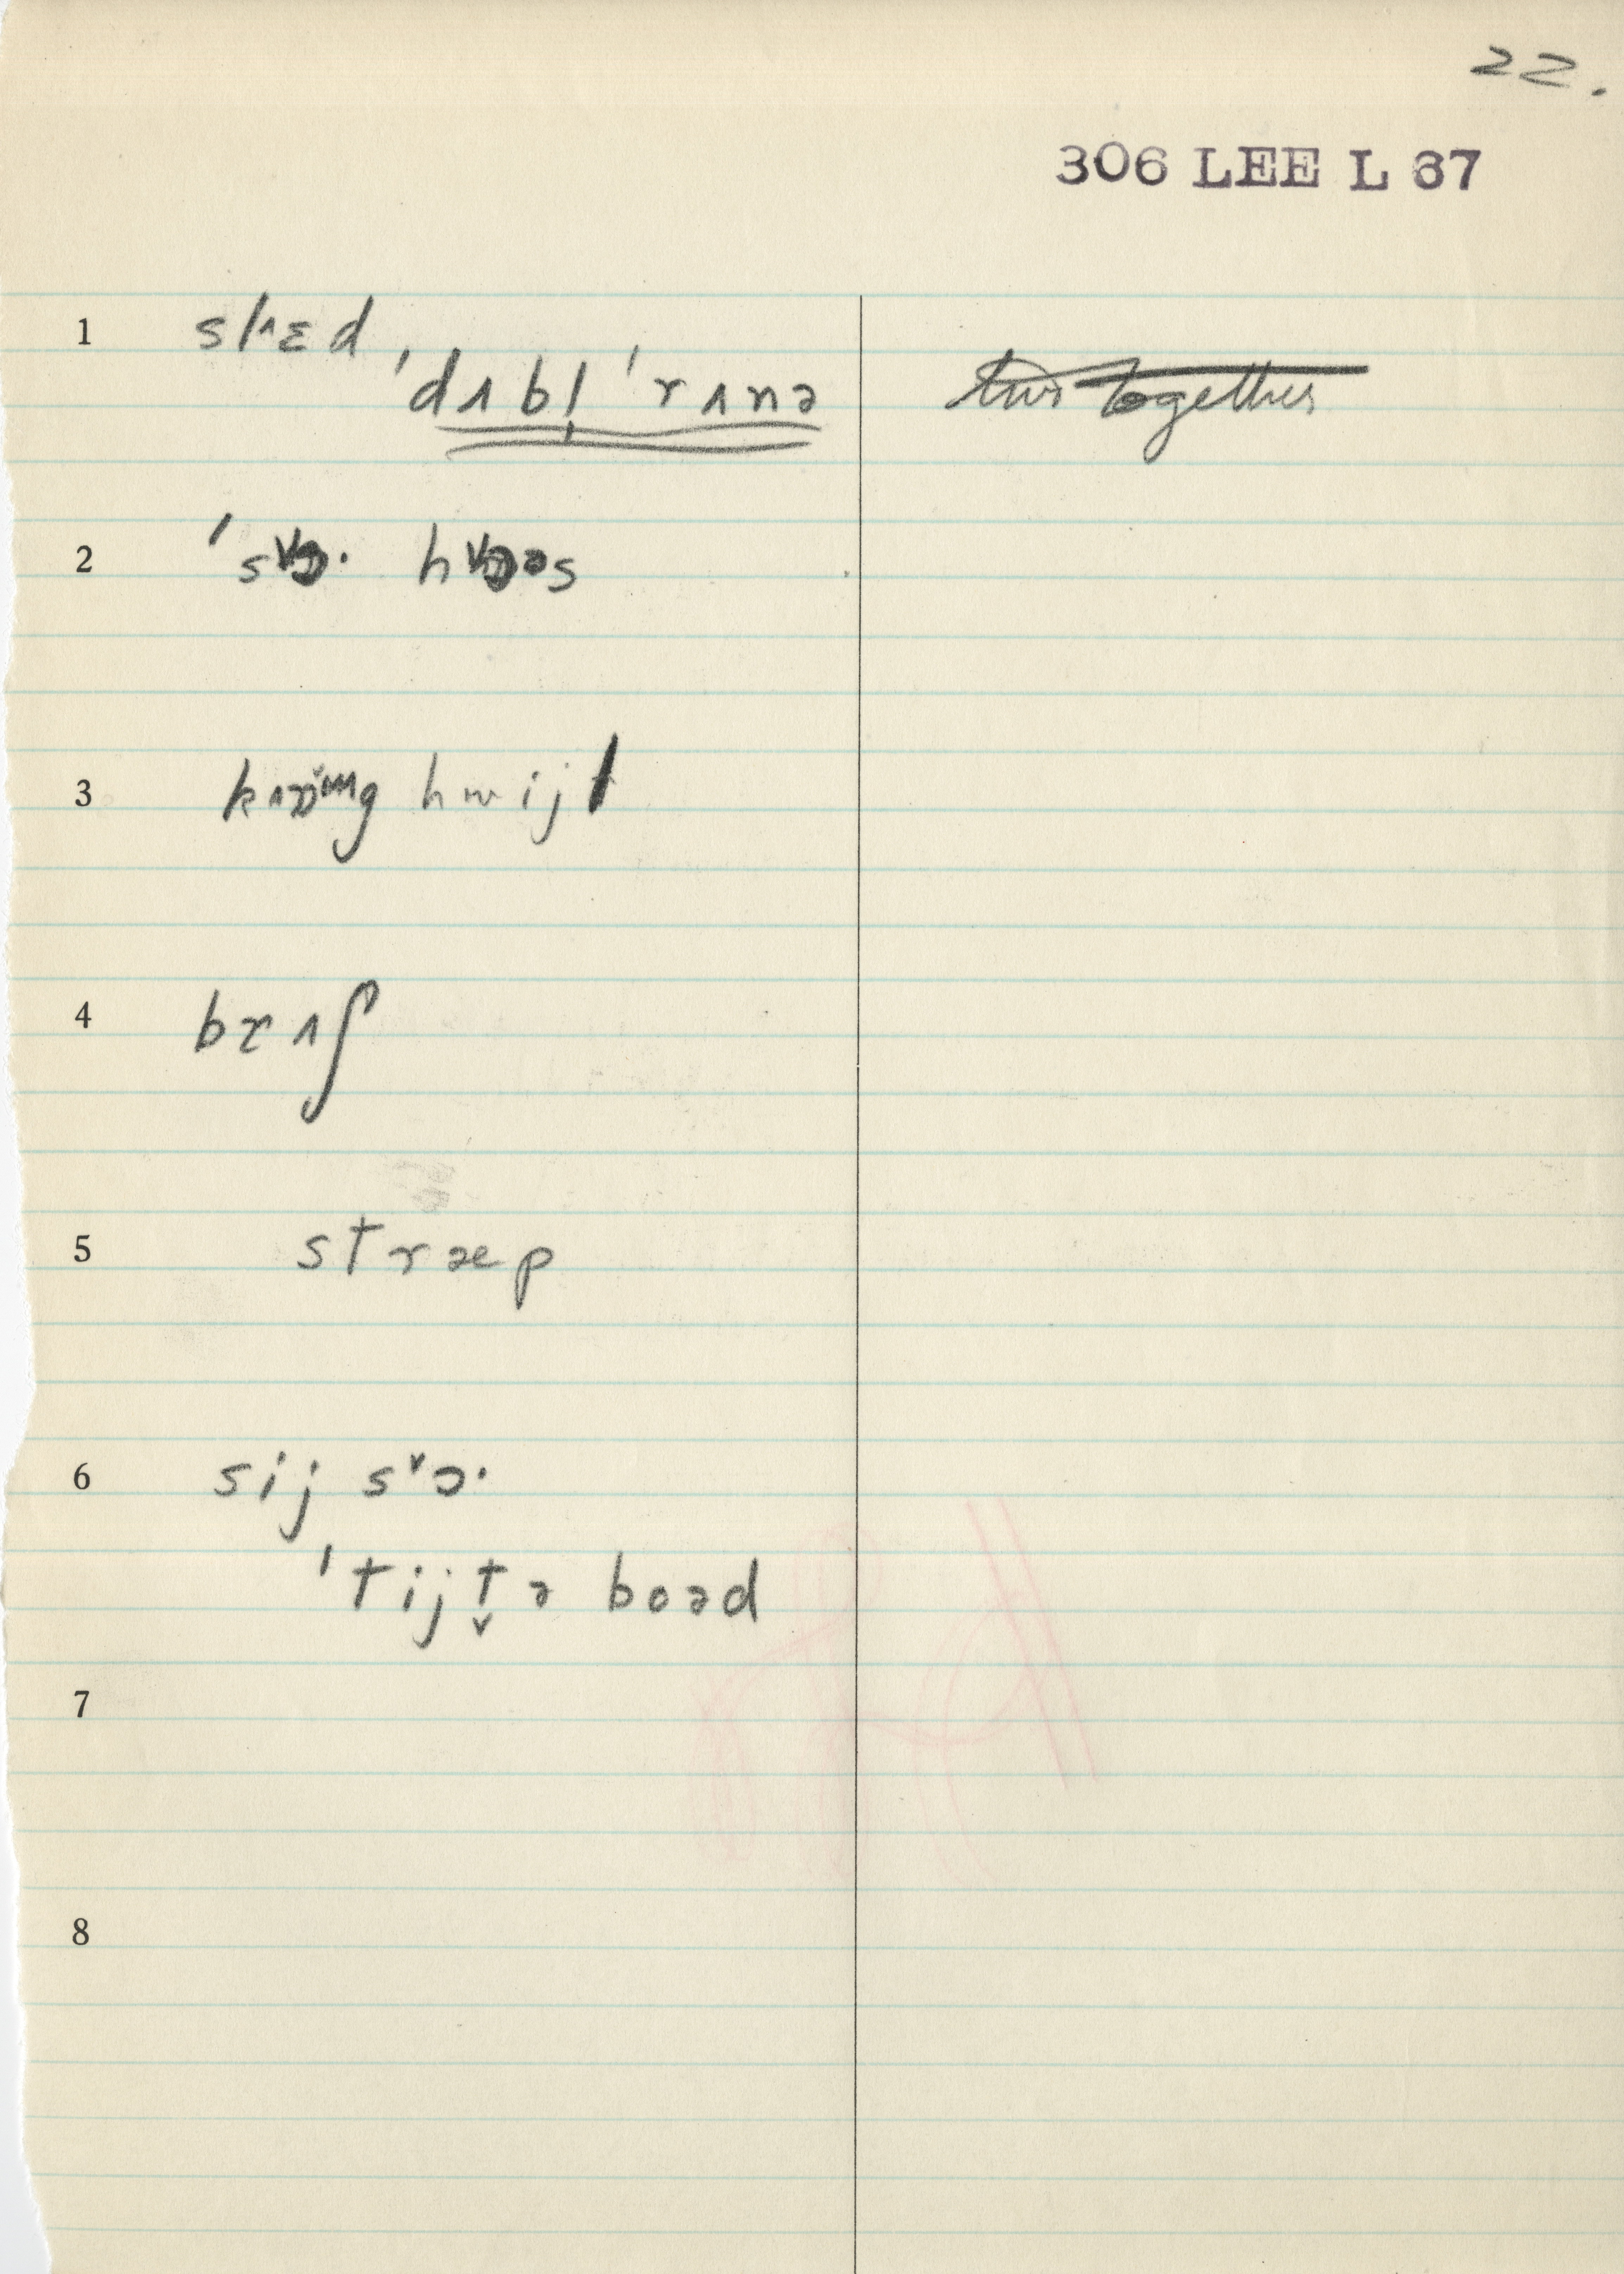 22.
306 LEE L 67
1 slᶺɛd
ˈdʌbl̩ ˈrʌnə
two together
2 ˈsᵛɔ· hᵛɔəs
3 hwijt
4 brʌʃ
5 stræp
6 sij sᵛɔ·
ˈtijt̬ə boəd
7
8